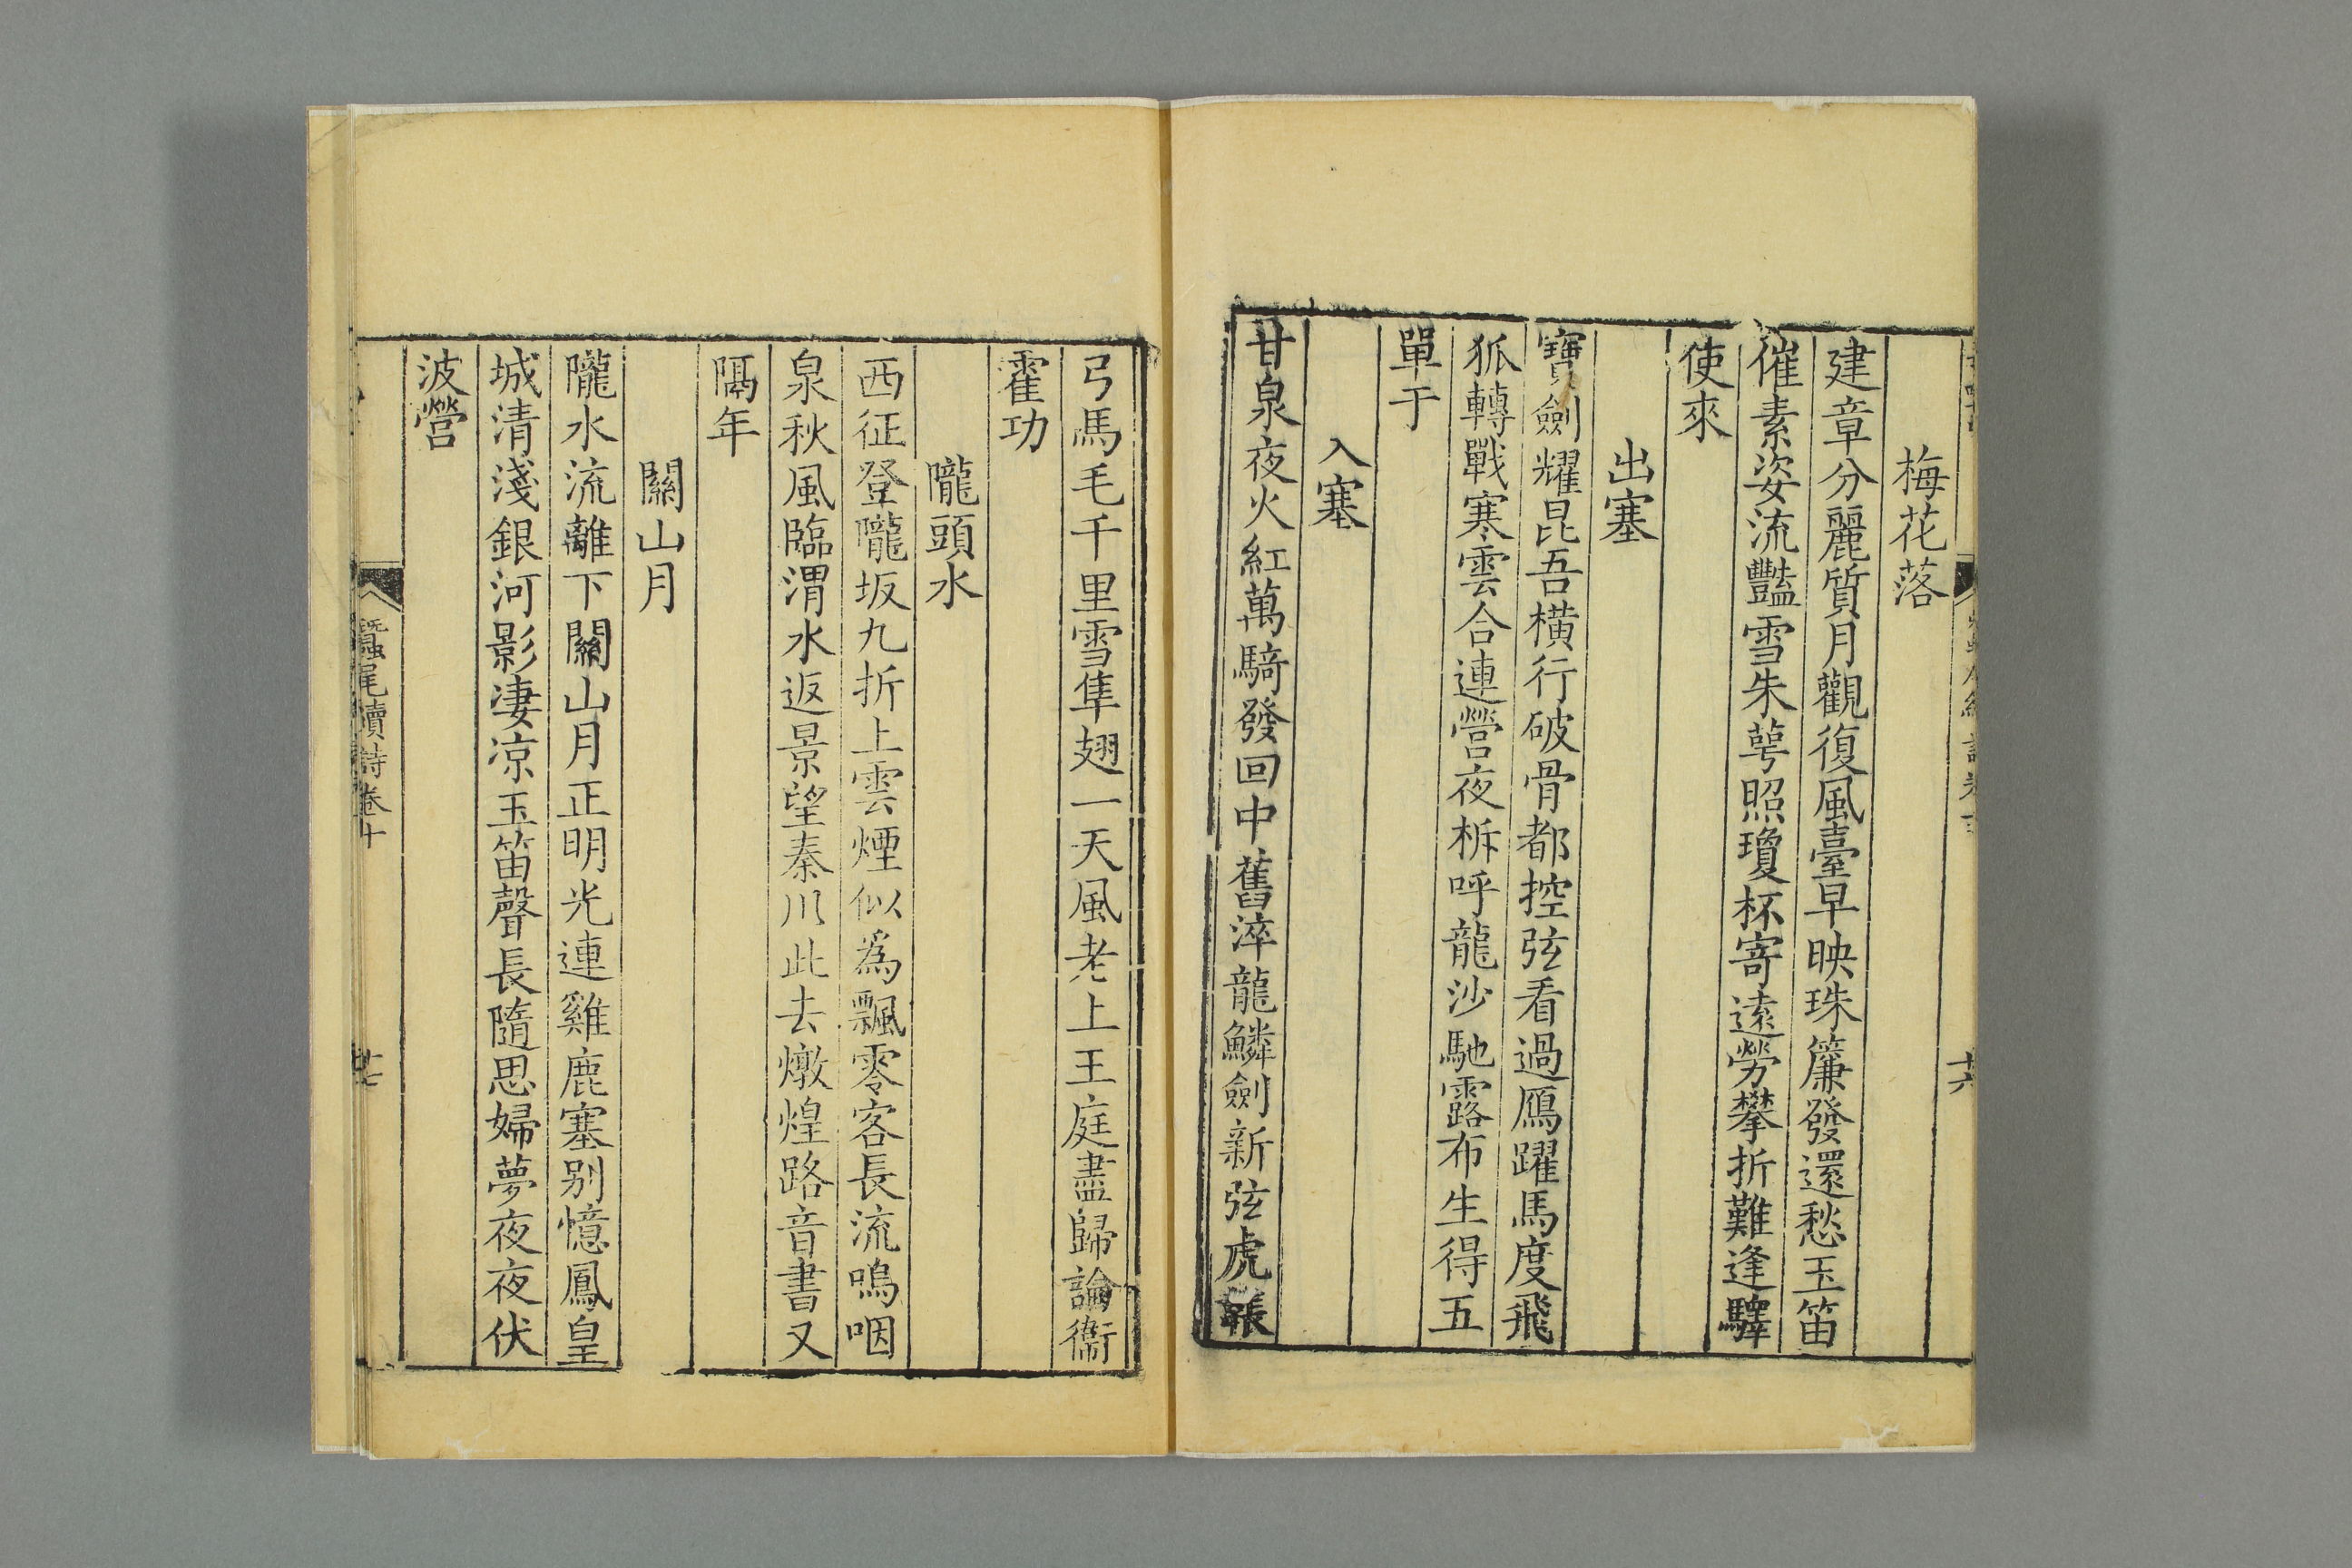 梅花落
建章分麗質月觀復風臺早映珠簾發還愁玉笛
催素姿流豔雪朱萼照瓊杯寄遠勞攀折難逢驛
使來
出塞
寶劍耀昆吾橫行破骨都控弦看過鴈躍馬度飛
狐轉戰寒雲合連營夜柝呼龍沙馳露布生得五
單于
入塞
甘泉夜火紅萬騎發回中舊淬龍鱗劍新弦虎帳
弓馬毛千里雪隼翅一天風老上王庭盡歸論衞
霍功
隴頭水
西征登隴坂九折上雲煙似為飄零客長流嗚咽
泉秋風臨渭水返景望秦川此去燉煌路音書又
隔年
關山月
隴水流離下關山月正明光連雞鹿塞別憶鳳皇
城清淺銀河影淒凉玉笛聲長隨思婦夢夜夜伏
波營
蠶尾續詩卷十
十六